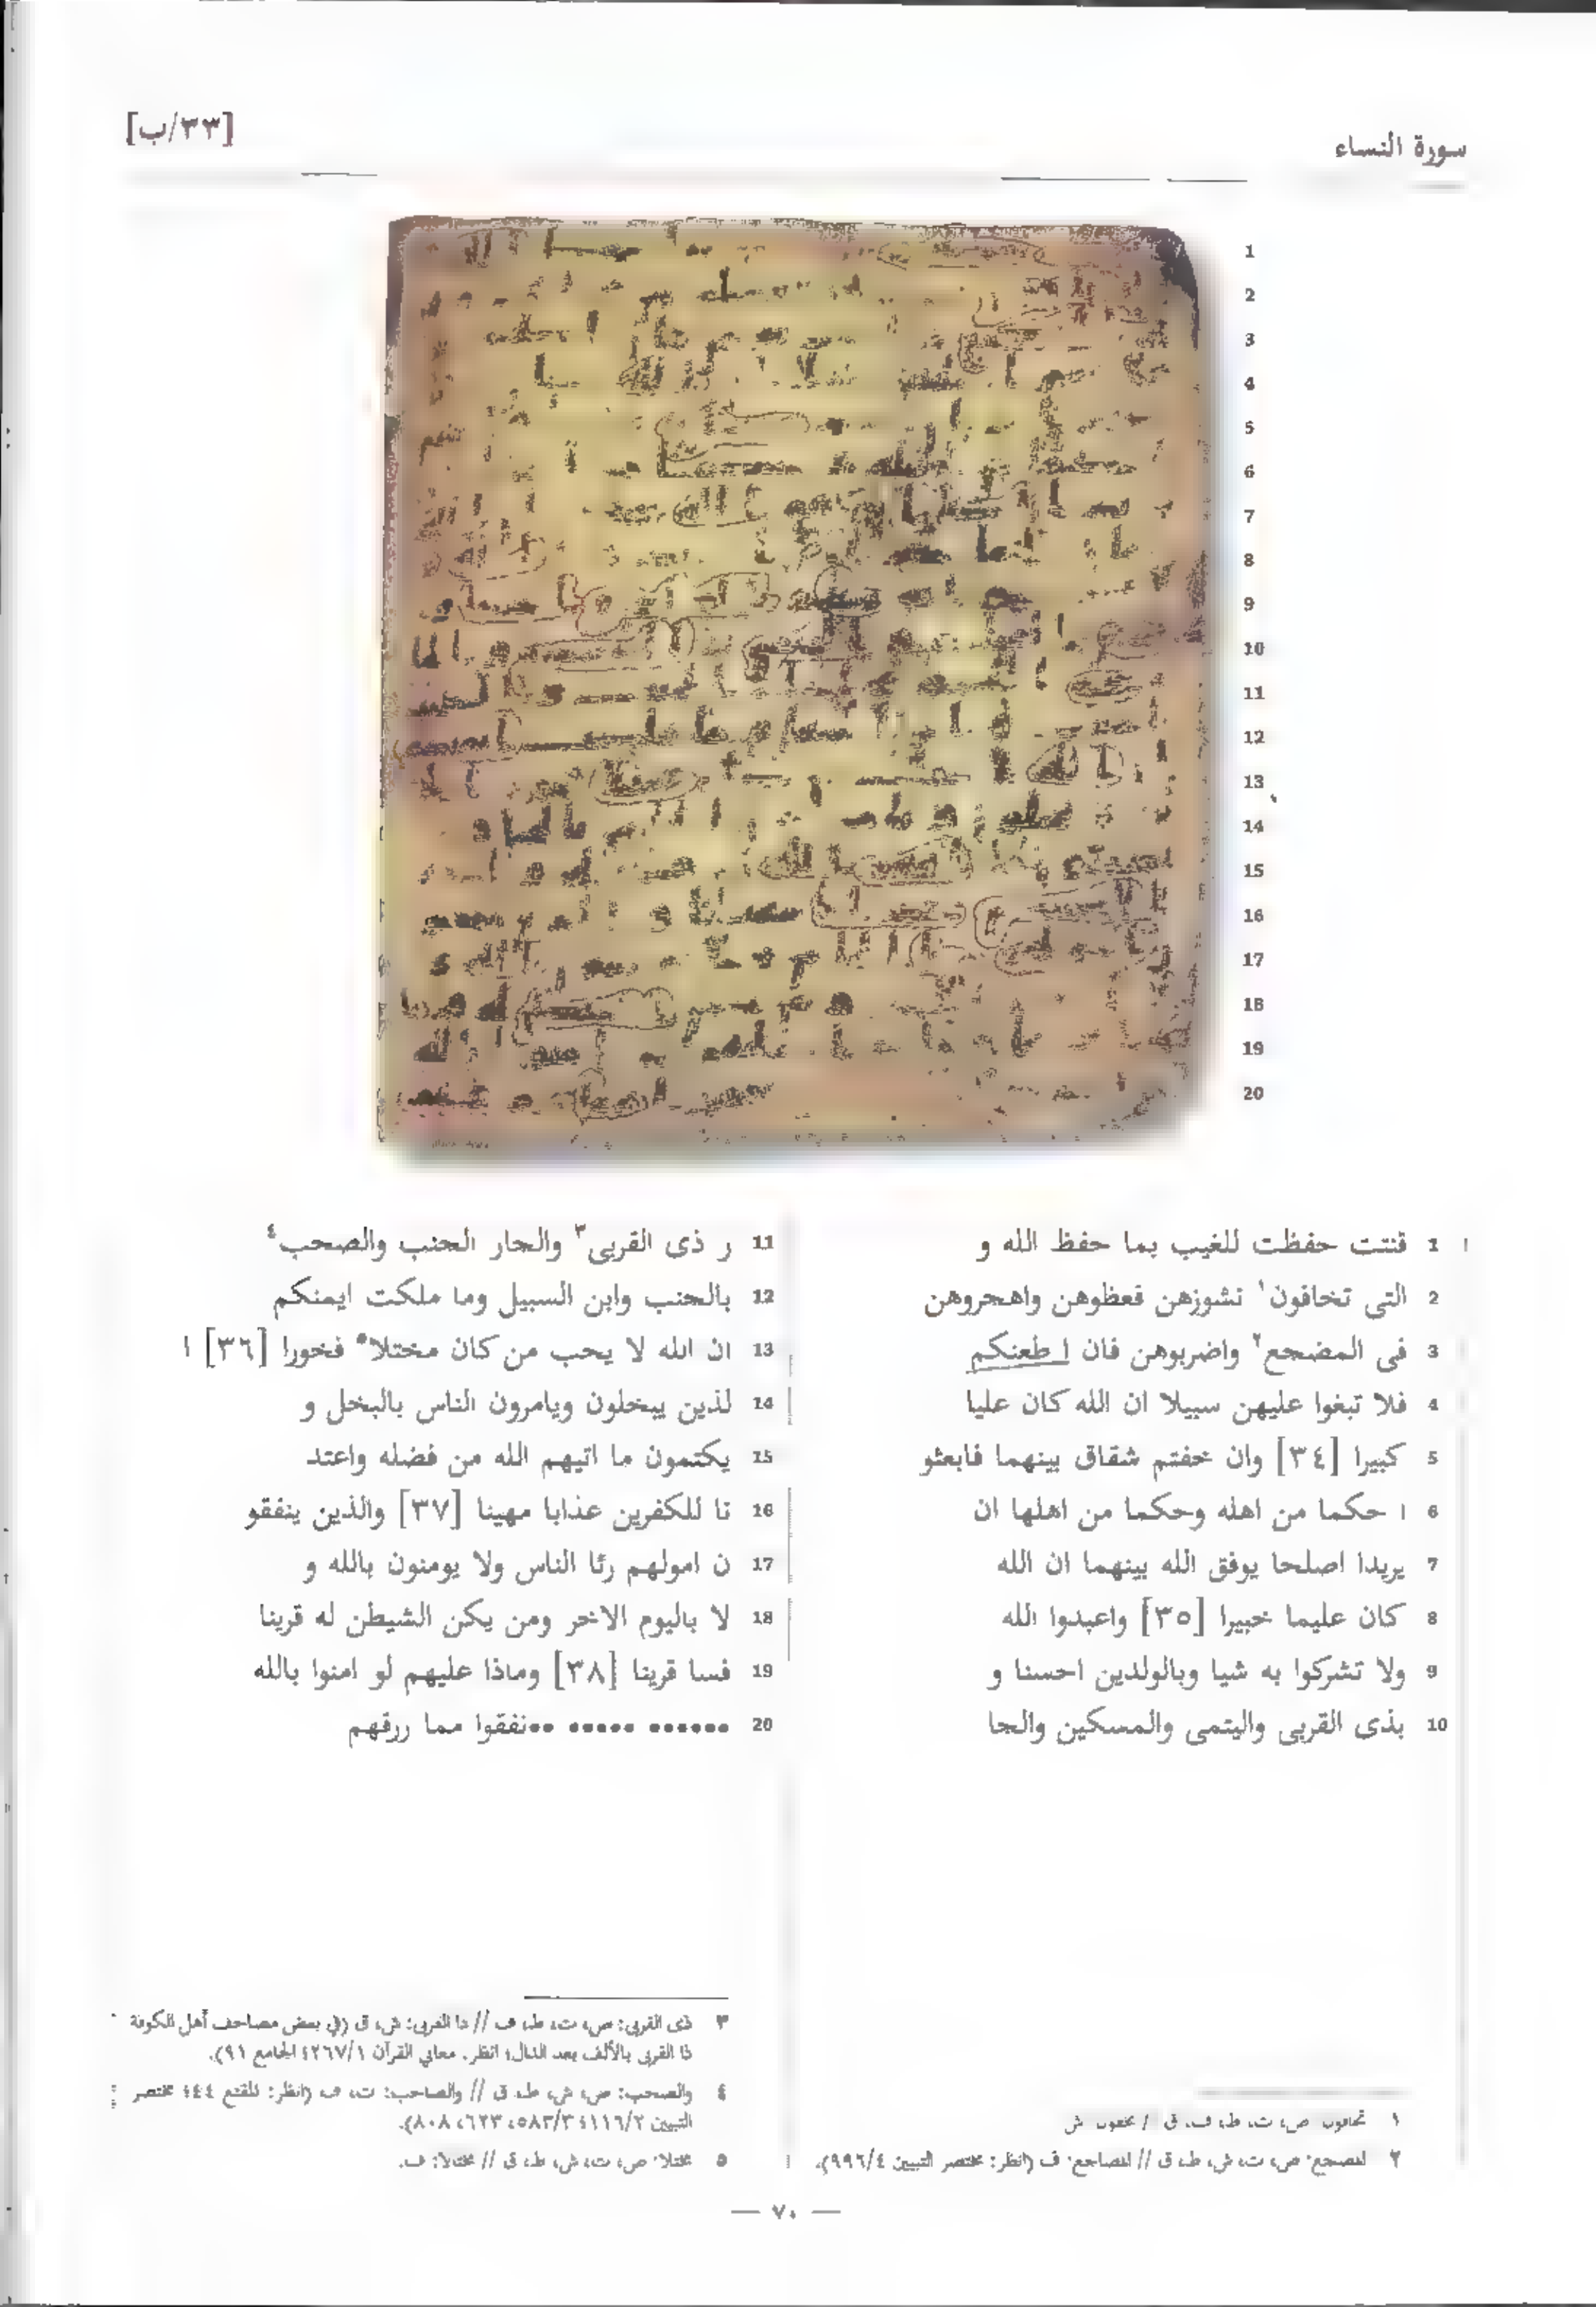 سورة النساء
[٣٣/ب]
1
2
3
4
5
6
7
8
9
10
11
12
13
14
15
16
17
18
19
20
1 قنتت حفظت للغيب بما حفظ الله و
2 التى تخافون١ نشوزهن فعظوهن واهجروهن
3 فى المضجع٢ واضربوهن فان ا طعنكم
4 فلا تبغوا عليهن سبيلا ان الله كان عليا
5 كبيرا [٣٤] وان خفتم شقاق بينهما فابعثو
6 ا حكما من اهله وحكما من اهلها ان
7 يريدا اصلحا يوفق الله بينهما ان الله
8 كان عليما خبيرا [٣٥] واعبدوا الله
9 ولا تشركوا به شيا وبالولدين احسنا و
10 بذى القربى واليتمى والمسكين والجا
11 ر ذى القربى٣ والجار الجنب والصحب٤
12 بالجنب وابن السبيل وما ملكت ايمنكم
13 ان الله لا يحب من كان مختلا٥ فخورا [٣٦] ا
14 لذين يبخلون ويامرون الناس بالبخل و
15 يكتمون ما اتيهم الله من فضله واعتد
16 نا للكفرين عذابا مهينا [٣٧] والذين ينفقو
17 ن امولهم رئا الناس ولا يومنون بالله و
18 لا باليوم الاخر ومن يكن الشيطن له قرينا
19 فسا قرينا [٣٨] وماذا عليهم لو امنوا بالله
20 •••••• ••••• ••نفقوا مما رزقهم
١ تخافون: ص، ت، ط، ف، ق // تخفون: ش
٢ المضجع: ص، ت، ش، ط، ق // المضاجع: ف (انظر: مختصر التبيين ٩٩٦/٤).
٣ ذى القربى: ص، ت، ط، ف // ذا القربى: ش، ق (في بعض مصاحف أهل الكوفة
ذا القربى بالألف بعد الذال؛ انظر. معاني القرآن ٢٦٧/١؛ الجامع ٩١).
٤ والصحب: ص، ش، ط، ق // والصاحب: ت، ف (انظر: المقنع ٤٤؛ مختصر
التبيين ١١٦/٢؛ ٥٨٣/٣، ٦٢٣، ٨٠٨).
٥ مختلا: ص، ت، ش، ط، ق // مختالا: ف.
— ٧٠ —